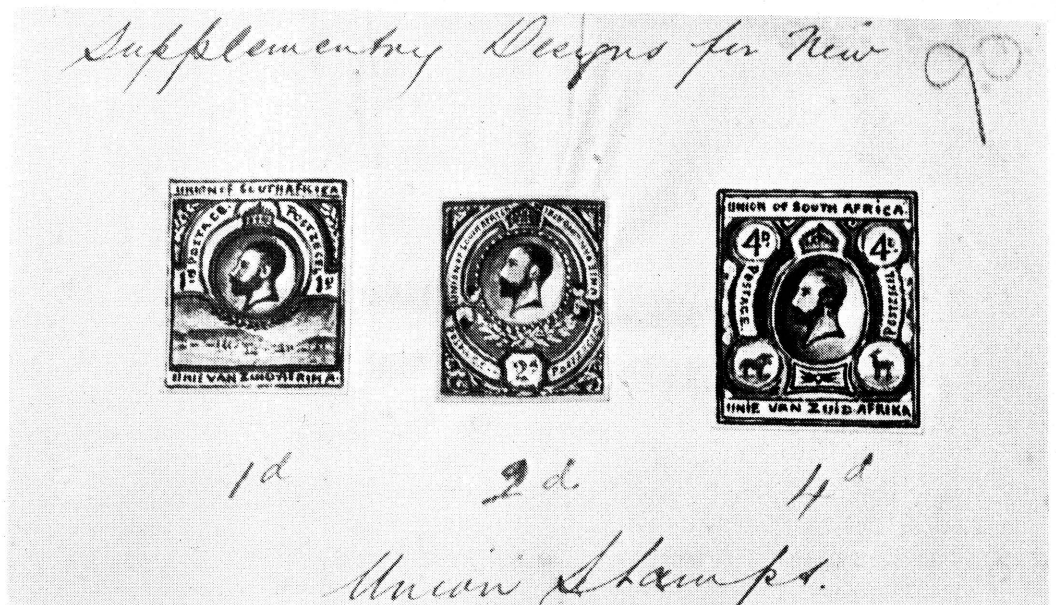 Supplementry Designs for New
UNION OF SOUTH AFRICA
POSTAGE. POSTZEGEL
1D 1D
UNIE VAN ZUID AFRIKA
UNION OF SOUTH AFRICA
POSTAGE
2D
UNION OF SOUTH AFRICA
4D. 4D.
POSTAGE. POSTZEGEL
UNIE VAN ZUID AFRIKA
1d 2d 4d
Union Stamps.